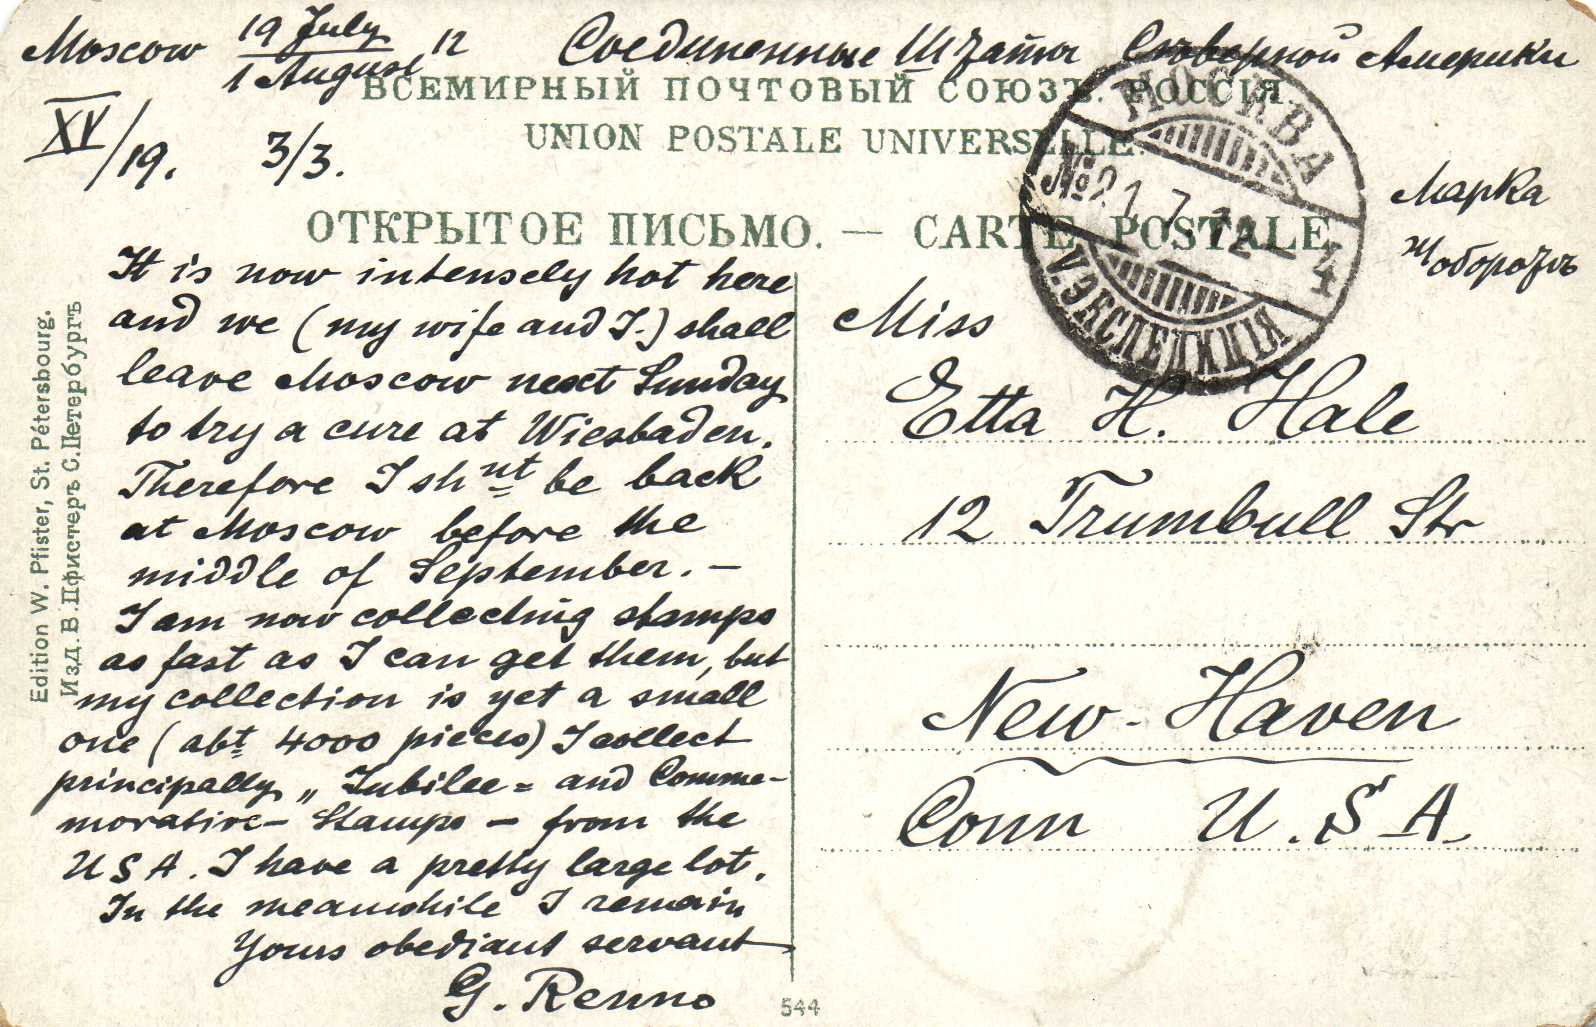 Moscow 19 July / 1 August 12 Соединенные Штаты Сѣверной Америки
ВСЕМИРНЫЙ ПОЧТОВЫЙ СОЮЗЪ. РОССІЯ.
UNION POSTALE UNIVERSELLE.
XV/19. 3/3.
ОТКРЫТОЕ ПИСЬМО. — CARTE POSTALE
МОСКВА
21 7 12
4
V. ЭКСПЕДИЦІЯ
Марка
на оборотѣ
Edition W. Pfister, St. Pétersbourg.
Изд. В. Пфистеръ С. Петербургъ
It is now intensely hot here
and we (my wife and I.) shall
leave Moscow next Sunday
to try a cure at Wiesbaden.
Therefore I sh nt be back
at Moscow before the
middle of September. —
I am now collecting stamps
as fast as I can get them, but
my collection is yet a small
one (abt 4000 pieces) I collect
principally „Jubilee = and Comme-
morative- Stamps — from the
U S A. I have a pretty large lot.
In the meanwhile I remain
Yours obediant servant
G. Renno
Miss
Etta H. Hale
12 Trumbull Str
New-Haven
Conn U. S A.
544